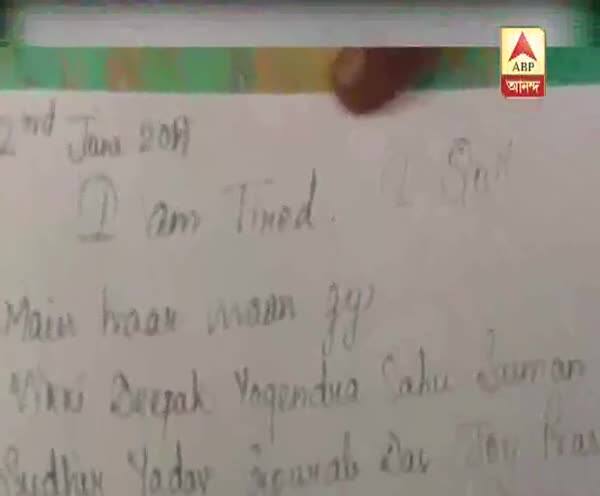 ABP
আনন্দ
2nd June 2019
I am Tired. I
Main haar maan gya
Vikki Deepak Yogendra Sahu Suman
Sudhir Yadav Sourab Das Joy Pras